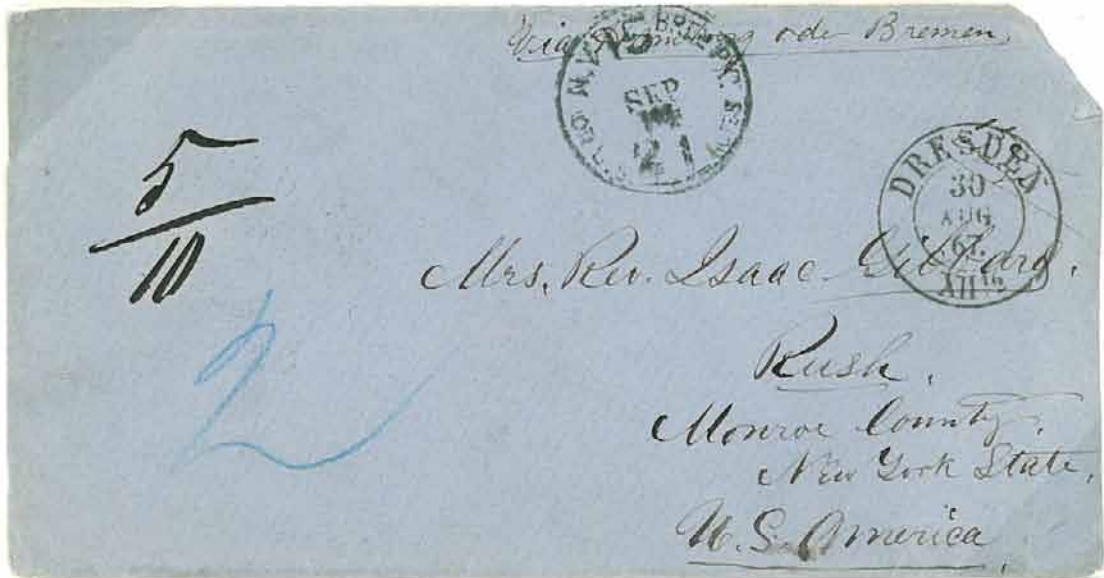 Via Hamburg oder Bremen,
SEP
21
DRESDEN
30
AUG
67.
5
10
2
Mrs. Rev. Isaac Gibbard.
Rush,
Monroe County,
New York State,
U. S. America